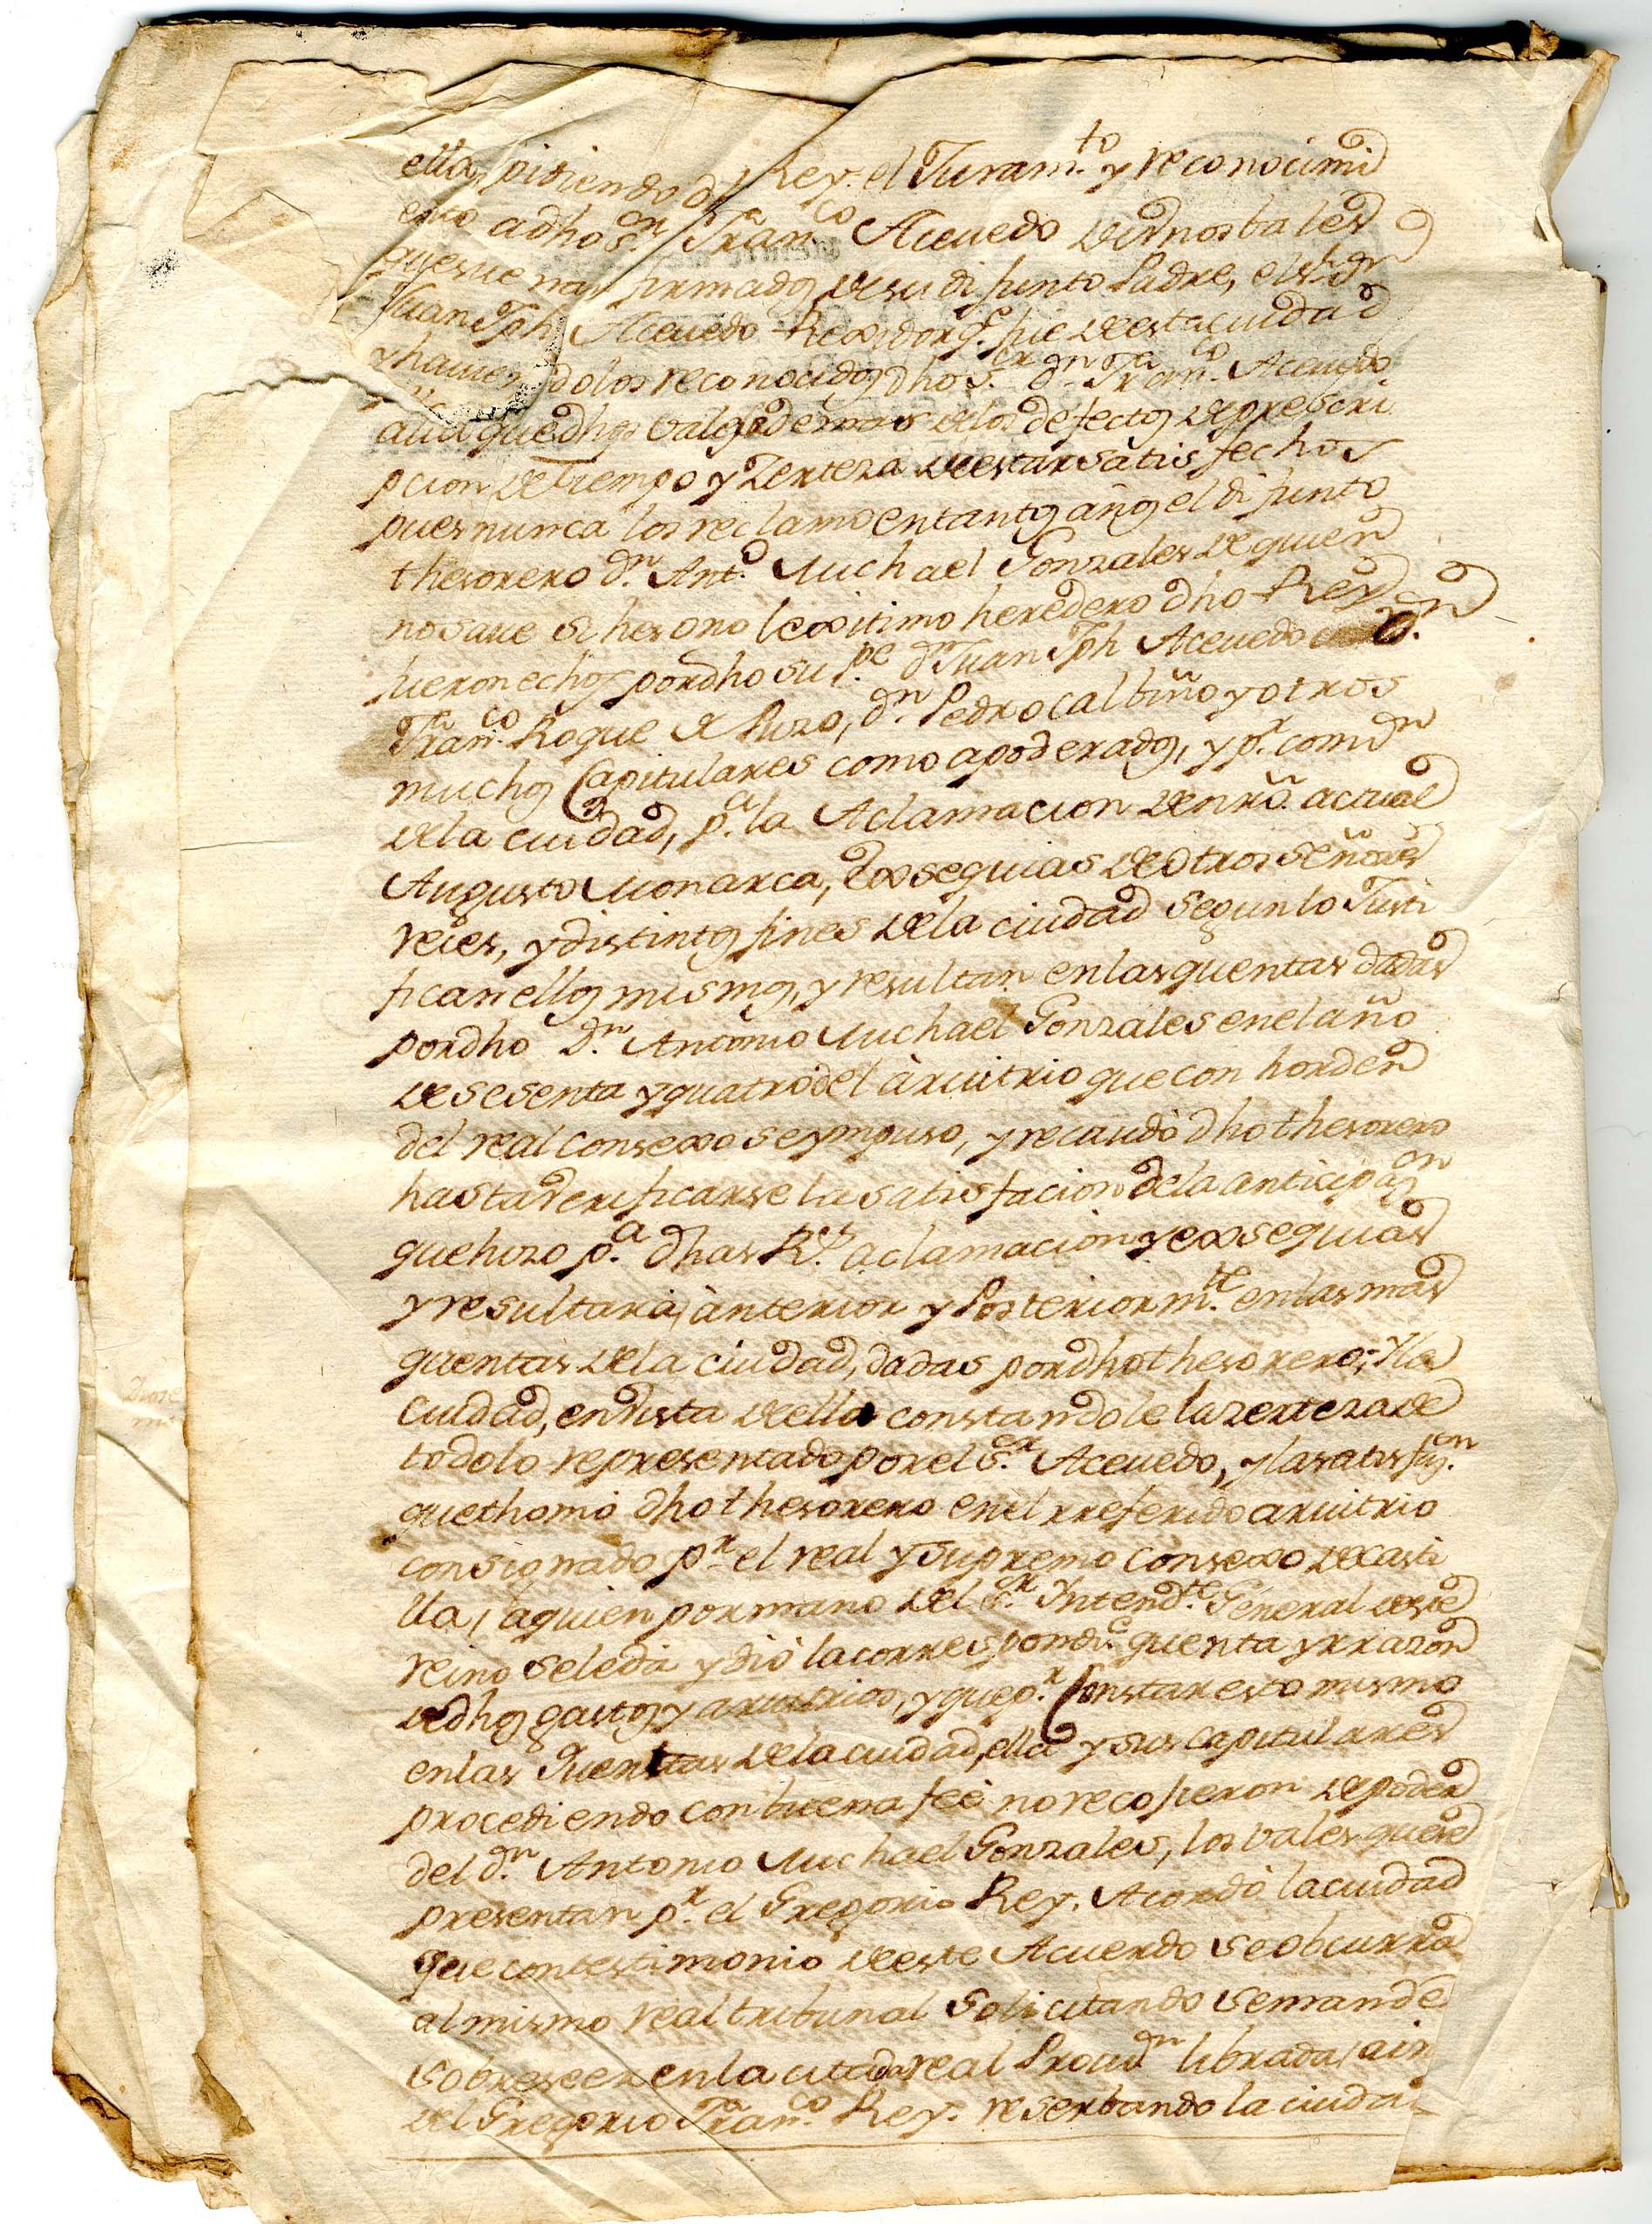 ella, pidiendo dho Rey. el Juram.to y reconocimi
ento adho S.or Fran.co Acevedo de unos bales
que suenan firmados de su difunto Padre, el S.r D.n
Juan Jph Acevedo Rexidor q.e fue de esta ciudad
y haviendolos reconocidos dho S.or D.n Fran.co Acevedo
que dhos vales demas de los defectos de prescri
pcion de tiempo y Zerteza de estar satisfechos
pues nunca los reclamo en tantos años el difunto
thesorero D.n Ant.o Michael Gonzales de quien
no save si hes o no lexitimo heredero dho Rey
fueron echos por dho su P.e D.n Juan Jph Acevedo D.n
Fran.co Roque de Puzo, D.n Pedro Calbiño y otros
muchos Capitulares como apoderados, y p.r comi.on
de la ciudad, p.a la Aclamacion de nrô. actual
Augusto Monarca, exsequias de otros señores
reies, y distintos fines de la ciudad segun lo Justi
fican ellos mismos, y resultan en las quentas dadas
por dho D.n Antonio Michael Gonzales en el año
de sesenta y quatro del àrvitrio que con horden
del real Consexo se ympuso, y recaudò dho thesorero
hasta verificarse la satisfacion de la anticipaz.on
que hizo p.a dhas R.s aclamacion y exsequias
y resultarà, ànterior y Posteriorm.te en las mas
quentas de la ciudad, dadas por dho thesorero; Y la
Ciudad, en vista de ella constandole la zerteza de
todo lo representado por el S.or Acevedo, y la satisfaz.on
que thomò dho thesorero en el rreferido arvitrio
consignado p.r el real y Supremo Consexo de Casti
lla, à quien por mano del S.r Yntend.te General de este
reino se le dà y diò la correspond.te quenta y rrazon
de dhos gastos y arvitrios, y que p.r Constar esto mismo
en las Quentas de la ciudad, ella y sus capitulares
procediendo con buena feè no recojieron de poder
del D.n Antonio Michael Gonzales, los vales que se
presentan p.r el Gregorio Rey. Acordò la ciudad
que con testimonio de este Acuerdo se obcurra
al mismo real tribunal solicitando se mande
sobreseer en la citada real Provid.n librada, a in
del Gregorio Fran.co Rey. reserbando la ciuda